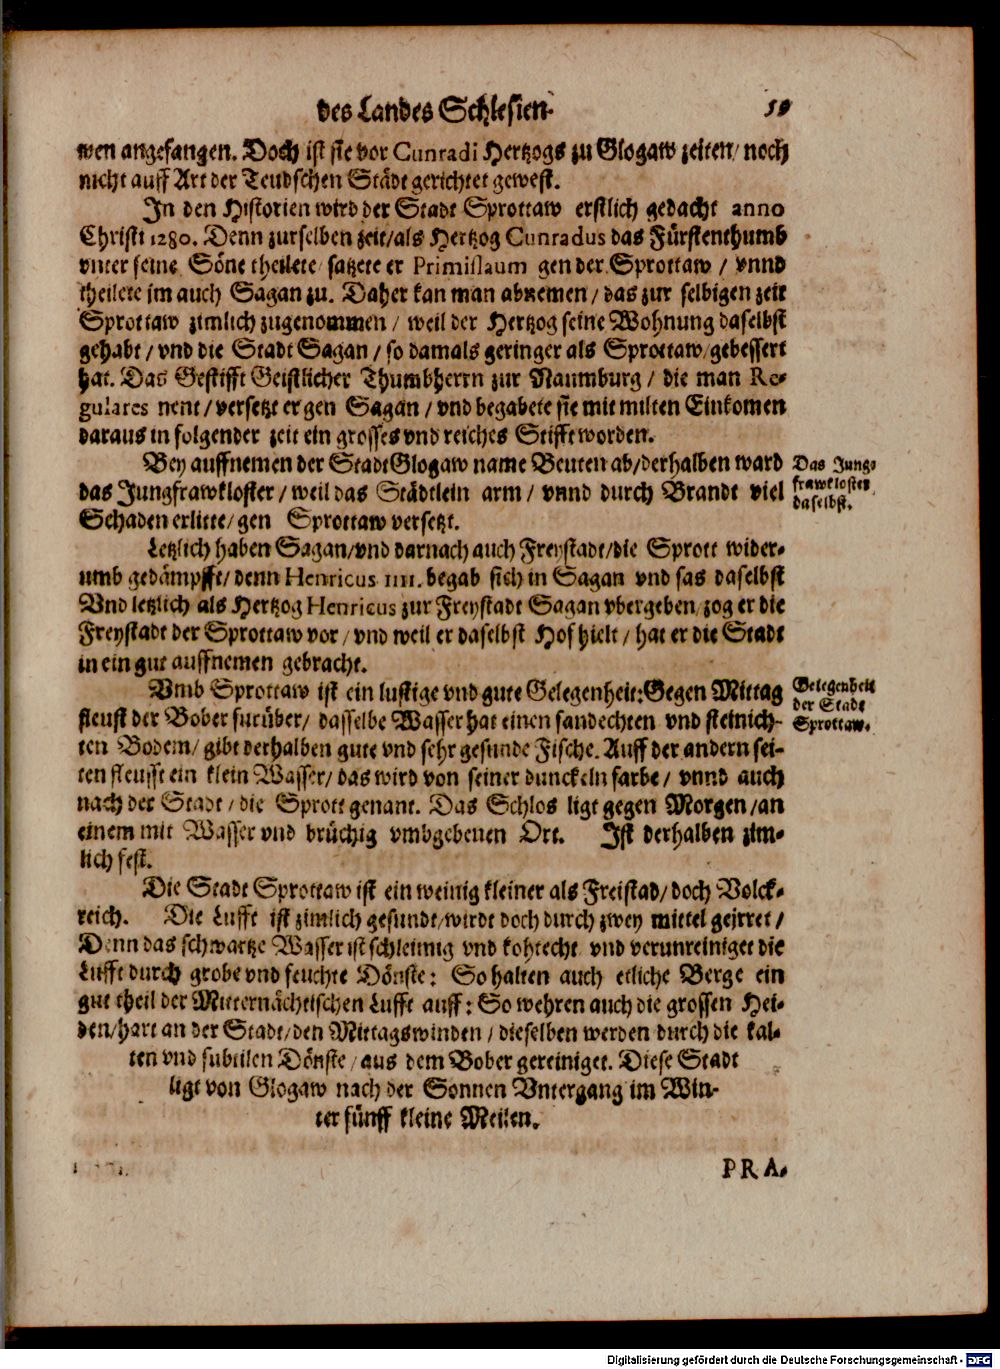 des Landes Schlesien.
59
wen angefangen. Doch ist sie vor Cunradi Hertzogs zu Glogaw zeiten/ noch
nicht auff Art der Teudschen Städt gerichtet gewest.
In den Historien wird der Stadt Sprottaw erstlich gedacht anno
Christi 1280. Denn zur selben zeit/als Hertzog Cunradus das Fürstenthumb
vnter seine Söne theilete/ satzete er Primislaum gen der Sprottaw / vnnd
theilete im auch Sagan zu. Daher kan man abnemen / das zur selbigen zeit
Sprottaw zimlich zugenommen / weil der Hertzog seine Wohnung daselbst
gehabt / vnd die Stadt Sagan / so damals geringer als Sprottaw/gebessert
hat. Das Gestifft Geistlicher Thumbherrn zur Naumburg / die man Re-
gulares nent / versetzt er gen Sagan / vnd begabete sie mit milten Einkomen
daraus in folgender zeit ein grosses vnd reiches Stifft worden.
Bey auffnemen der Stadt Glogaw name Beuten ab/derhalben ward
das Jungfrawkloster / weil das Städtlein arm / vnnd durch Brandt viel
Schaden erlitte/ gen Sprottaw versetzt.
Das Jung-
frawkloster
daselbst.
Letzlich haben Sagan/vnd darnach auch Freystadt/die Sprott wider-
umb gedämpfft/ denn Henricus IIII. begab sich in Sagan vnd sas daselbst
Vnd letzlich als Hertzog Henricus zur Freystadt Sagan vbergeben/ zog er die
Freystadt der Sprottaw vor / vnd weil er daselbst Hof hielt / hat er die Stadt
in ein gut auffnemen gebracht.
Vmb Sprottaw ist ein lustige vnd gute Gelegenheit: Gegen Mittag
fleust der Bober furüber/ dasselbe Wasser hat einen sandechten vnd steinich-
ten Bodem/ gibt derhalben gute vnd sehr gesunde Fische. Auff der andern sei-
ten fleusst ein klein Wasser/ das wird von seiner dunckeln farbe / vnnd auch
nach der Stadt / die Sprott genant. Das Schlos ligt gegen Morgen / an
einem mit Wasser vnd brüchig vmbgebenen Ort. Ist derhalben zim-
lich fest.
Gelegenheit
der Stadt
Sprottaw.
Die Stadt Sprottaw ist ein weinig kleiner als Freistad/ doch Volck-
reich. Die Lufft ist zimlich gesundt/wirdt doch durch zwey mittel geirret /
Denn das schwartze Wasser ist schleimig vnd kohtecht vnd verunreiniget die
Lufft durch grobe vnd feuchte Dönste: So halten auch etliche Berge ein
gut theil der Mitternächtischen Lufft auff: So wehren auch die grossen Hei-
den/hart an der Stadt/den Mittagswinden / dieselben werden durch die kal-
ten vnd subtilen Dönste / aus dem Bober gereiniget. Diese Stadt
ligt von Glogaw nach der Sonnen Vntergang im Win-
ter fünff kleine Meilen.
PRA-
Digitalisierung gefördert durch die Deutsche Forschungsgemeinschaft - DFG